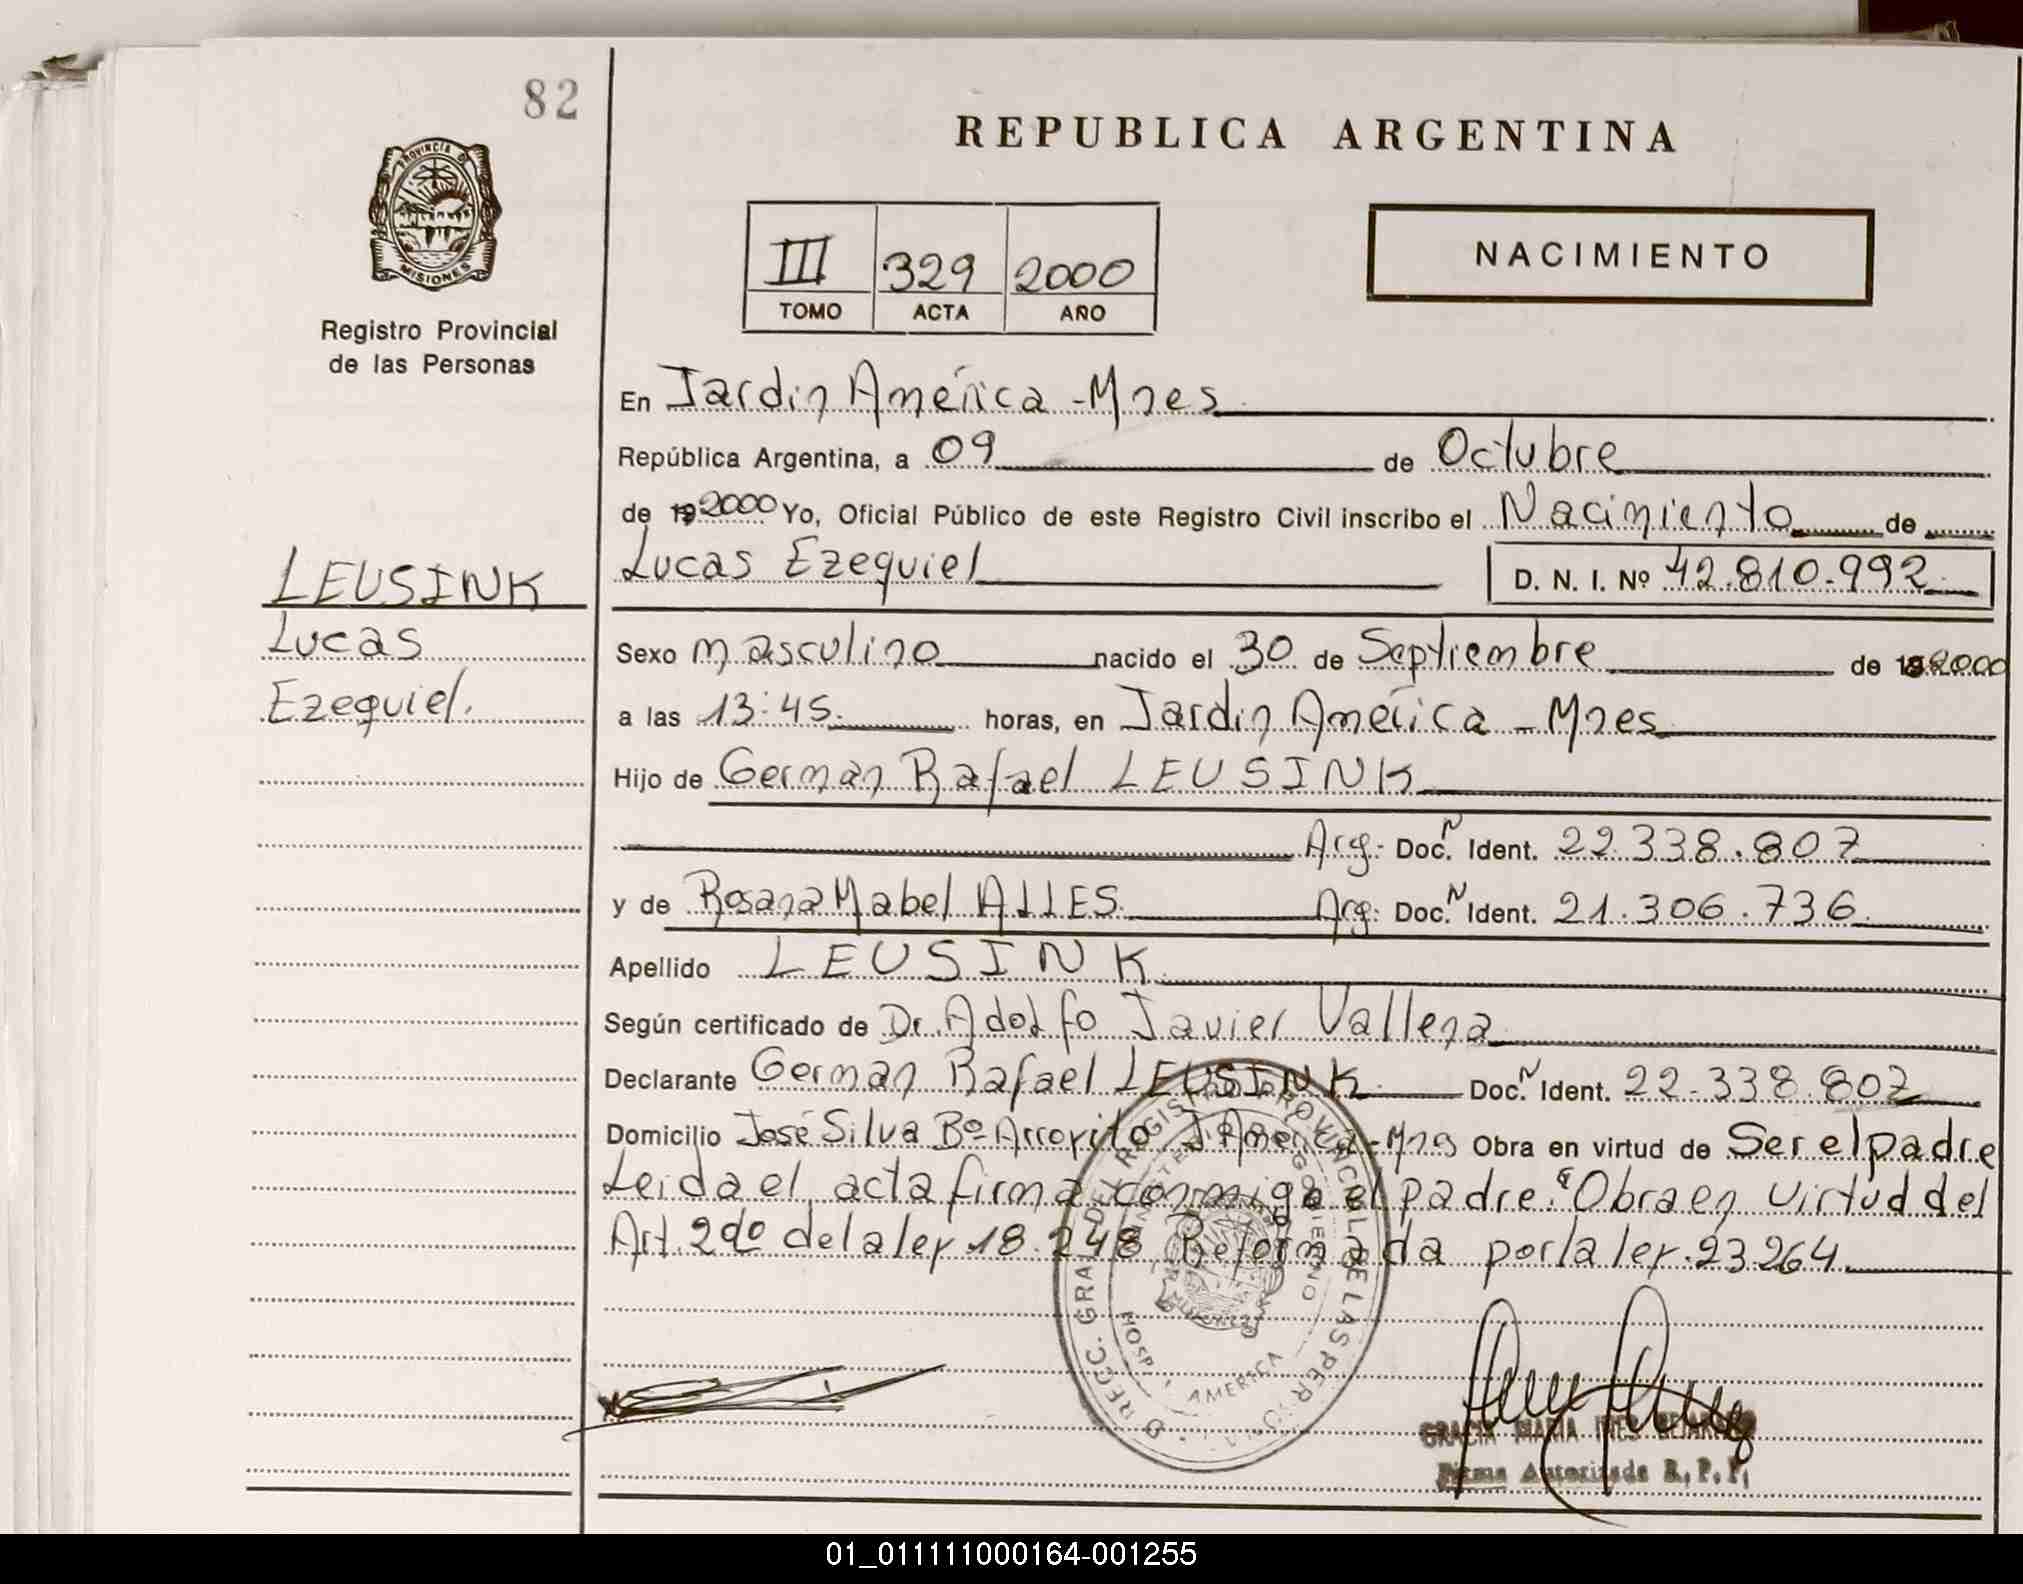 82
REPUBLICA ARGENTINA
PROVINCIA D
MISIONES
Registro Provincial
de las Personas
III 329 2000
TOMO ACTA AÑO
NACIMIENTO
En Jardin América - Mnes
República Argentina, a 09 de Octubre
de 19 2000 Yo, Oficial Público de este Registro Civil inscribo el Nacimiento de
Lucas Ezequiel D. N. I. Nº 42.810.992
LEUSINK
Lucas
Ezequiel.
Sexo masculino nacido el 30 de Septiembre de 19 2000
a las 13:45 horas, en Jardin América - Mnes
Hijo de German Rafael LEUSINK
Arg. Doc. N Ident. 22.338.807
y de Rosana Mabel ALLES Arg. Doc. N Ident. 21.306.736
Apellido LEUSINK
Según certificado de Dr. Adolfo Javier Vallena
Declarante German Rafael LEUSINK Doc. N Ident. 22.338.807
Domicilio José Silva Bº Arroyito J. America - Mnes Obra en virtud de Ser el padre
Leida el acta firma conmigo el padre. Obra en virtud del
Art. 2do de la ley 18.248 Reformada por la ley 23264
REGISTRO PROVINCIAL DE LAS PER
GOBIERNO
HOSP. AMERICA
GRACIA MARIA INES
Firma Autorizada R. P. P.
01_011111000164-001255